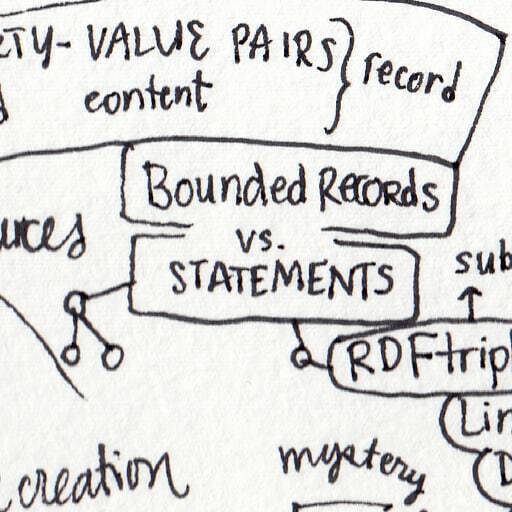 RTY-VALUE PAIRS } record
content
Bounded Records
vs.
STATEMENTS
sub
RDF trip
Lin
D
creation
mystery